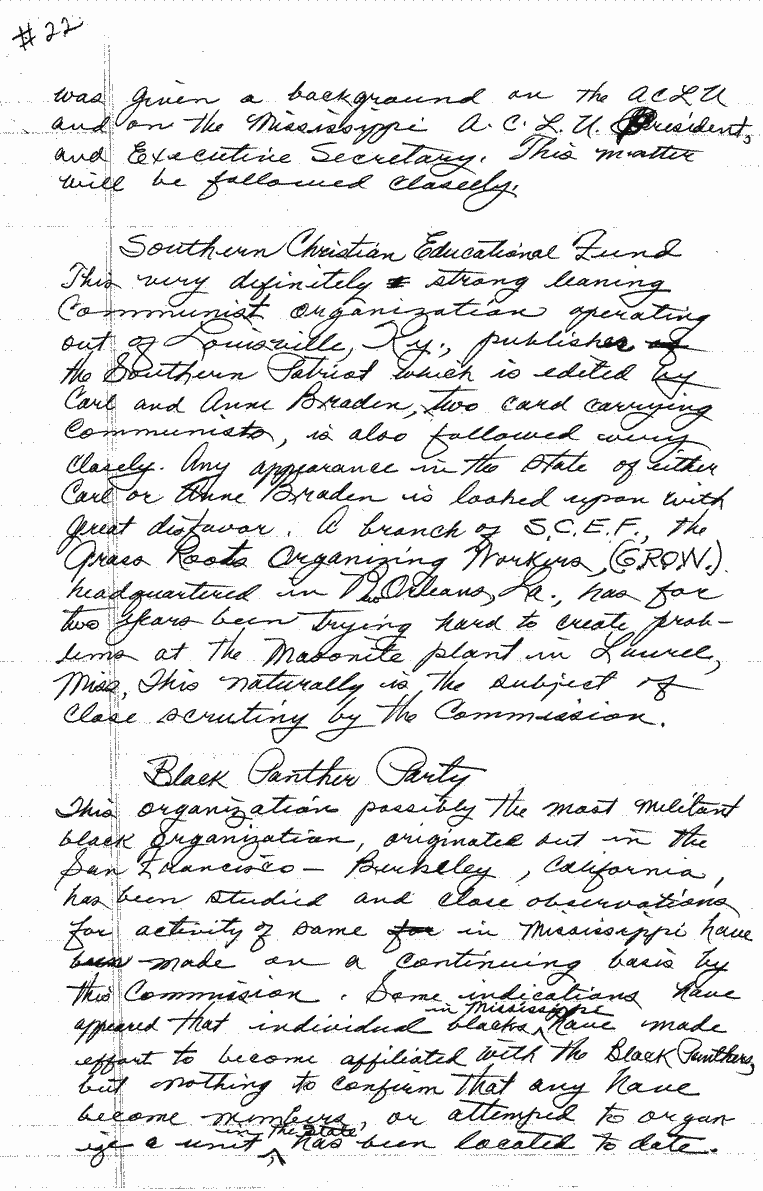 #22
was given a background on the ACLU
and on the Mississippi A.C.L.U. President,
and Executive Secretary. This matter
will be followed closely.
Southern Christian Educational Fund
This very definitely strong leaning
Communist organization operating
out of Louisville, Ky., publisher of
the Southern Patriot which is edited by
Carl and Anne Braden, two card carrying
Communists, is also followed very
closely. Any appearance in the State of either
Carl or Anne Braden is looked upon with
great disfavor. A branch of S.C.E.F., the
Grass Roots Organizing Workers, (G.R.O.W.)
headquartered in New Orleans, La., has for
two years been trying hard to create prob-
lems at the Masonite plant in Laurel,
Miss. This naturally is the subject of
close scrutiny by the Commission.
Black Panther Party
This organization possibly the most militant
black organization, originated out in the
San Francisco - Berkeley, California,
has been studied and close observations
for activity of same for in Mississippi have
been made on a continuing basis by
this Commission. Some indications have
appeared that individual blacks, in Mississippi have made
effort to become affiliated with the Black Panthers,
but nothing to confirm that any have
become members, or attempted to organ
ize a unit, in the State has been located to date.